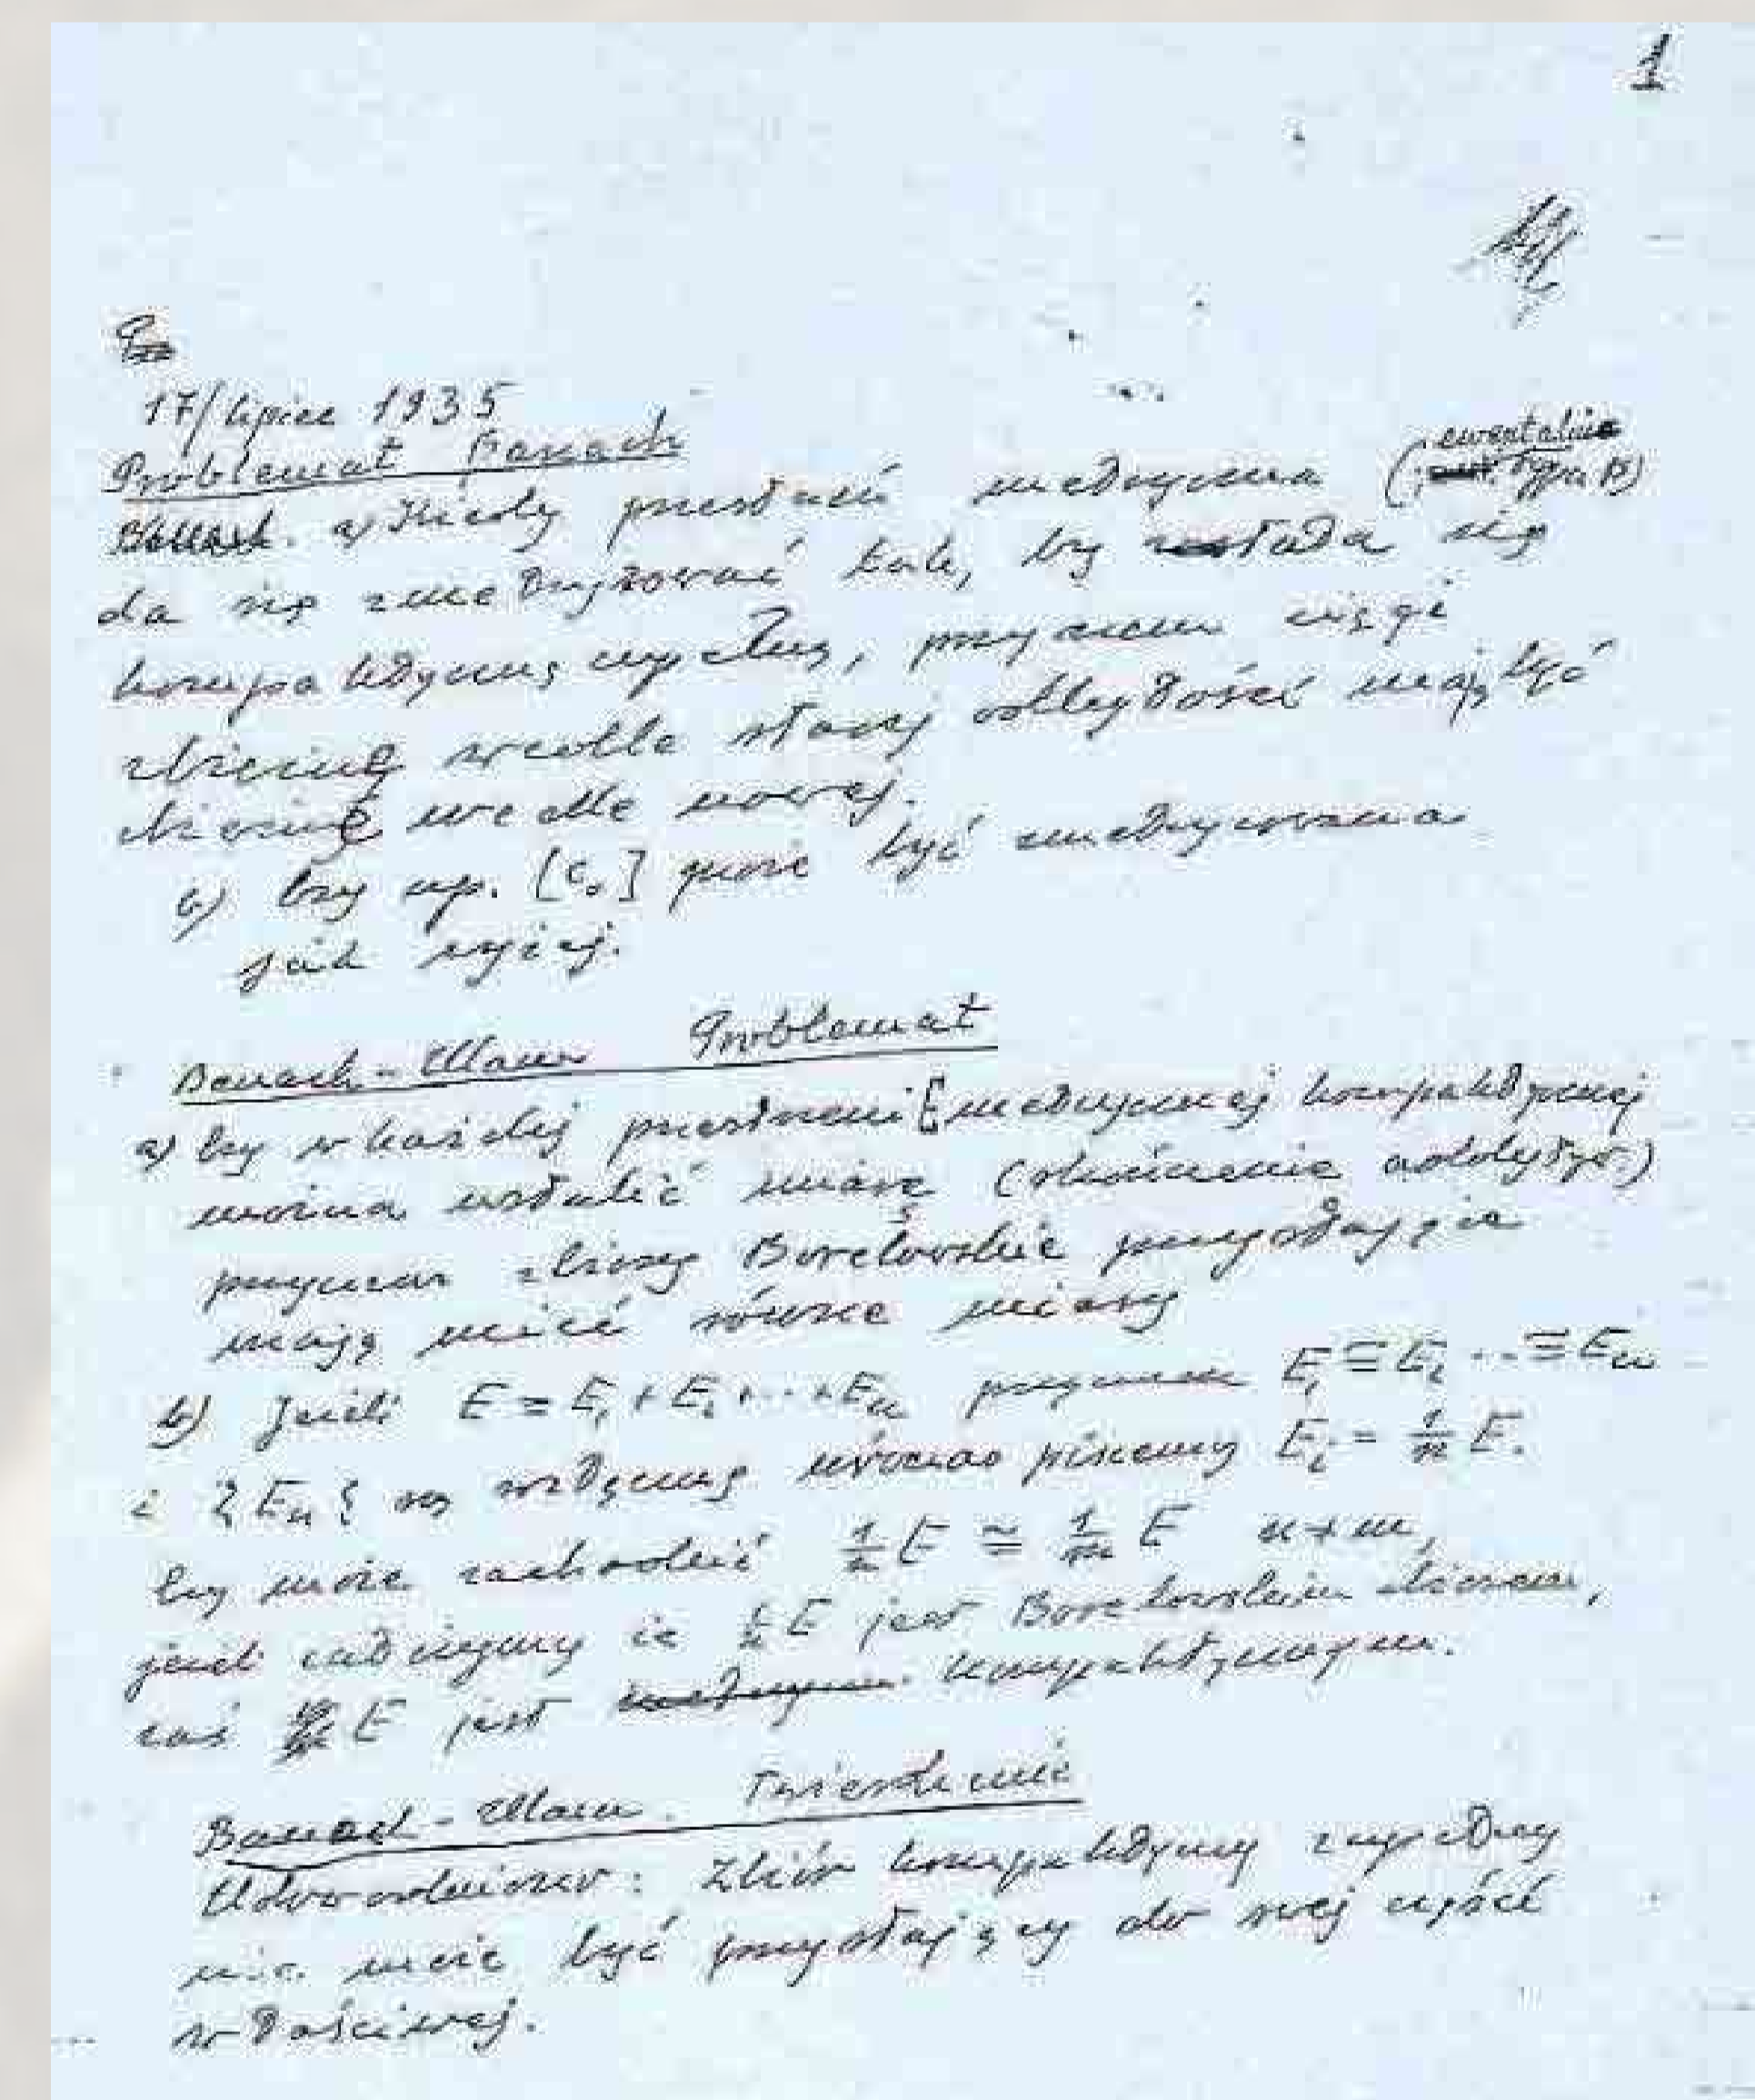 1
17/lipiec 1935
Problemat Banach
a) Kiedy przestrzeń metryczna (ewentualnie typu B)
da się zmetryzować tak, by stała się
kompaktyczną i zupełną, przyczem ciągi
zbieżne wedle starej odległości mają być
zbieżne wedle nowej.
b) Czy np. [c₀] może być zmetryzowana
jak wyżej.
Banach-Ulam Problemat
a) Czy w każdej przestrzeni [metrycznej kompaktycznej
można ustalić miarę (skończenie addytyw.)
przyczem zbiory Borelowskie przystające
mają mieć równe miary
b) Jeżeli E = E₁ + E₂ + ... + Eₙ przyczem E₁ ≅ E₂ ... ≅ Eₙ
i {Eₙ} są rozłączne wówczas piszemy Eᵢ = 1/n E.
Czy może zachodzić 1/n E ≅ 1/m E n≠m,
jeżeli E jest Borelowskim zbiorem,
zaś E jest kompaktycznym.
Banach-Ulam. Twierdzenie
Udowodniono: Zbiór kompaktyczny zupełny
nie może być przystający do swej części
właściwej.